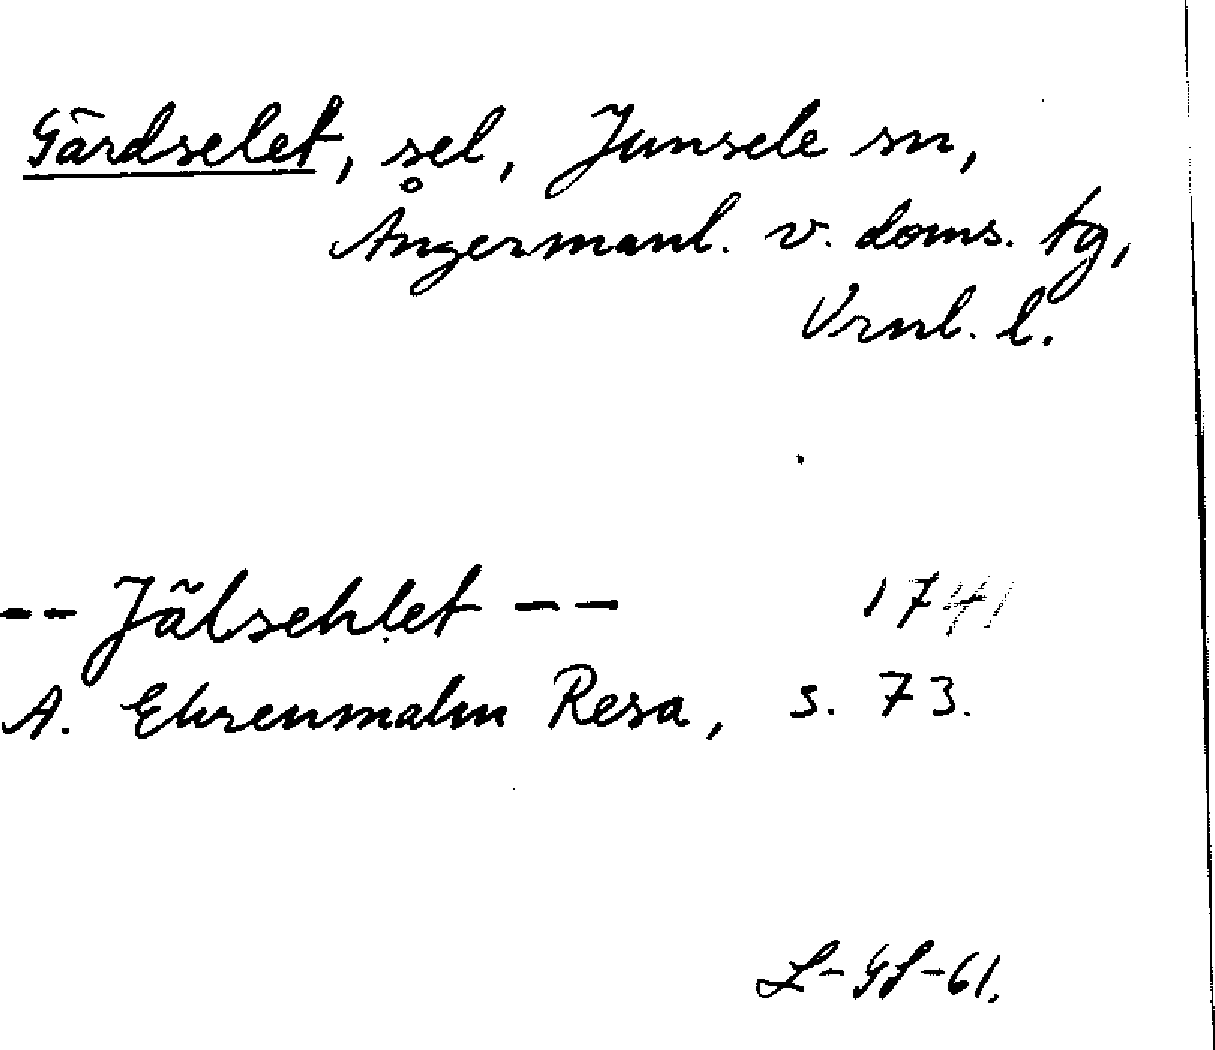 Gärdselet, sel, Junsele sn,
Ångermanl. v. doms. tg,
Vrnl. l.
-- Jälsehlet -- 1741
A. Ehrenmalm Resa, s. 73.
L-GS-61.